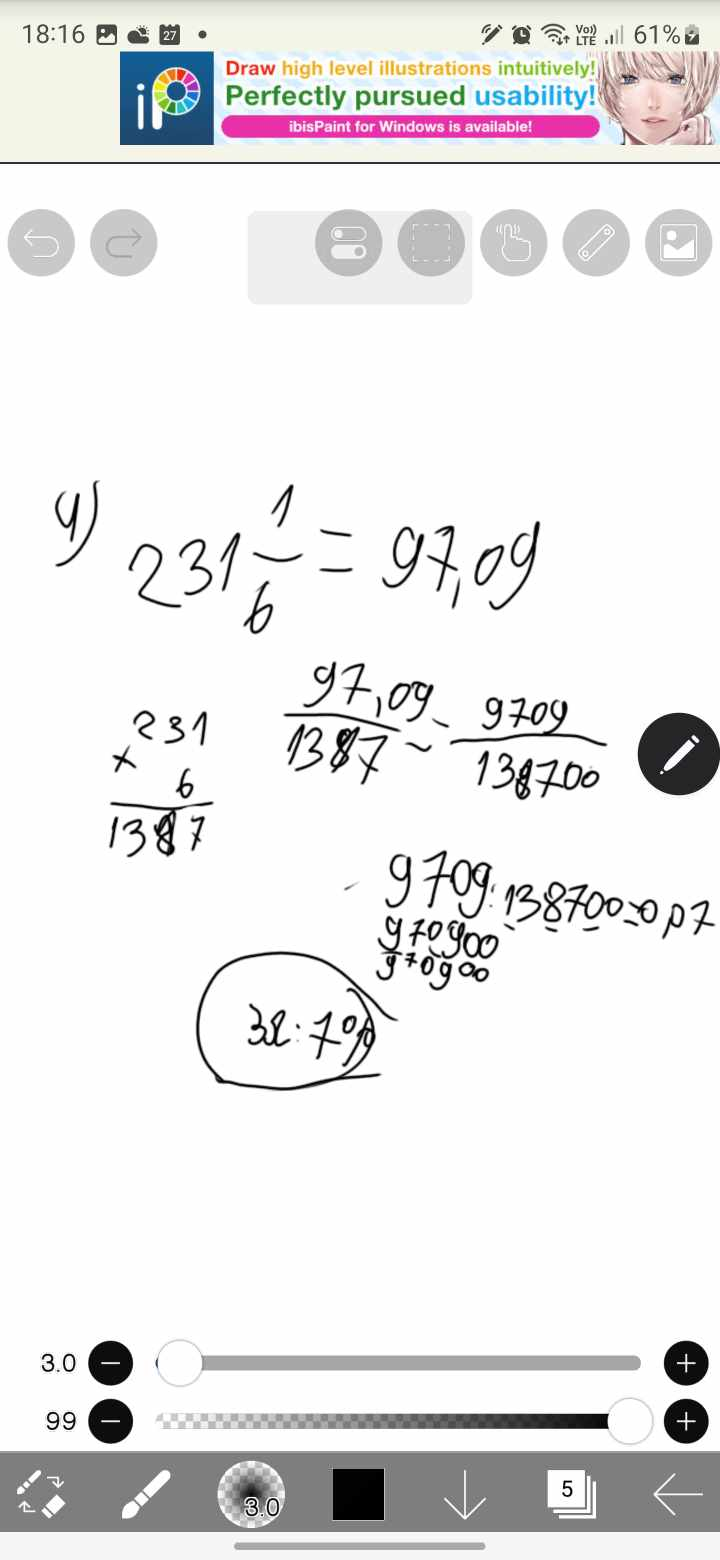 18:16 27 Vo)) LTE 61%
Draw high level illustrations intuitively!
Perfectly pursued usability!
ibisPaint for Windows is available!
4) 231 1/6 = 97,09
231
× 6
1387
97,09/1387 ~ 9709/138700
9709:138700=0,07
970900
970900
32:7%
3.0
99
3.0
5